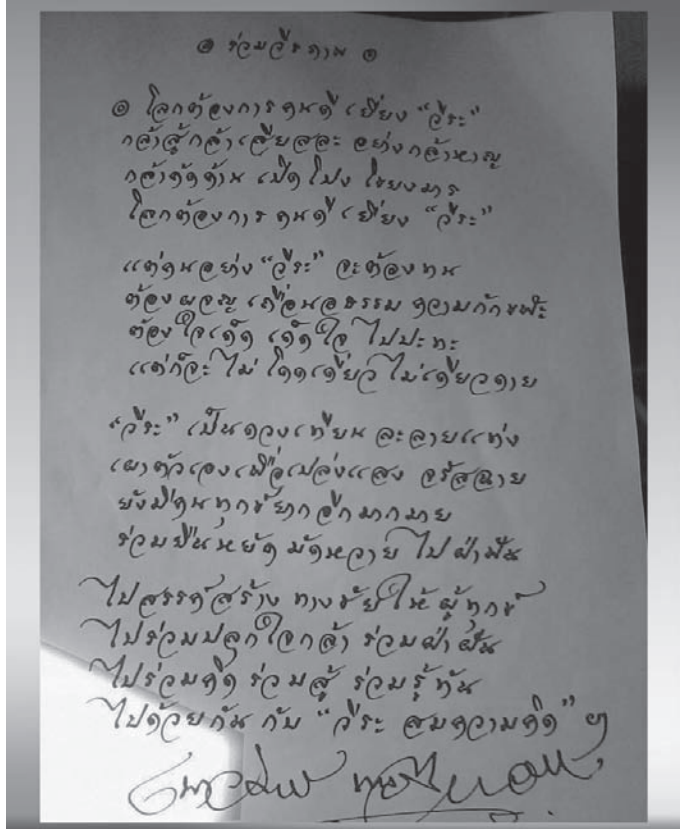 ๏ ร่วมวีรกาน ๏
๏ โลกต้องการคนดี เยี่ยง “วีระ”
กล้าสู้กล้าเสียสละ อย่างกล้าหาญ
กล้าคัดค้าน เปิดโปง โยงมาร
โลกต้องการคนดี เยี่ยง “วีระ”
แต่คนอย่าง “วีระ” จะต้องทน
ต้องผจญ เถื่อนอธรรม ความกักขฬะ
ต้องใจเด็ด เด็ดใจ ไปปะทะ
แต่ก็จะไม่ โดดเดี่ยว ไม่เดียวดาย
“วีระ” เป็นดวงเทียน ละลายแท่ง
เผาตัวเองเพื่อเปล่งแสง จรัสฉาย
ยังมีคนทุกข์ยากอีกมากมาย
ร่วมยืนหยัด มัดหวาย ไปฝ่าฟัน
ไปสรรค์สร้าง ทางชัยให้ ผู้ทุกข์
ไปร่วมปลุกใจกล้า ร่วมฝ่าฝัน
ไปร่วมคิด ร่วมสู้ ร่วมรู้ทัน
ไปด้วยกัน กับ “วีระ สมความคิด” ฯ